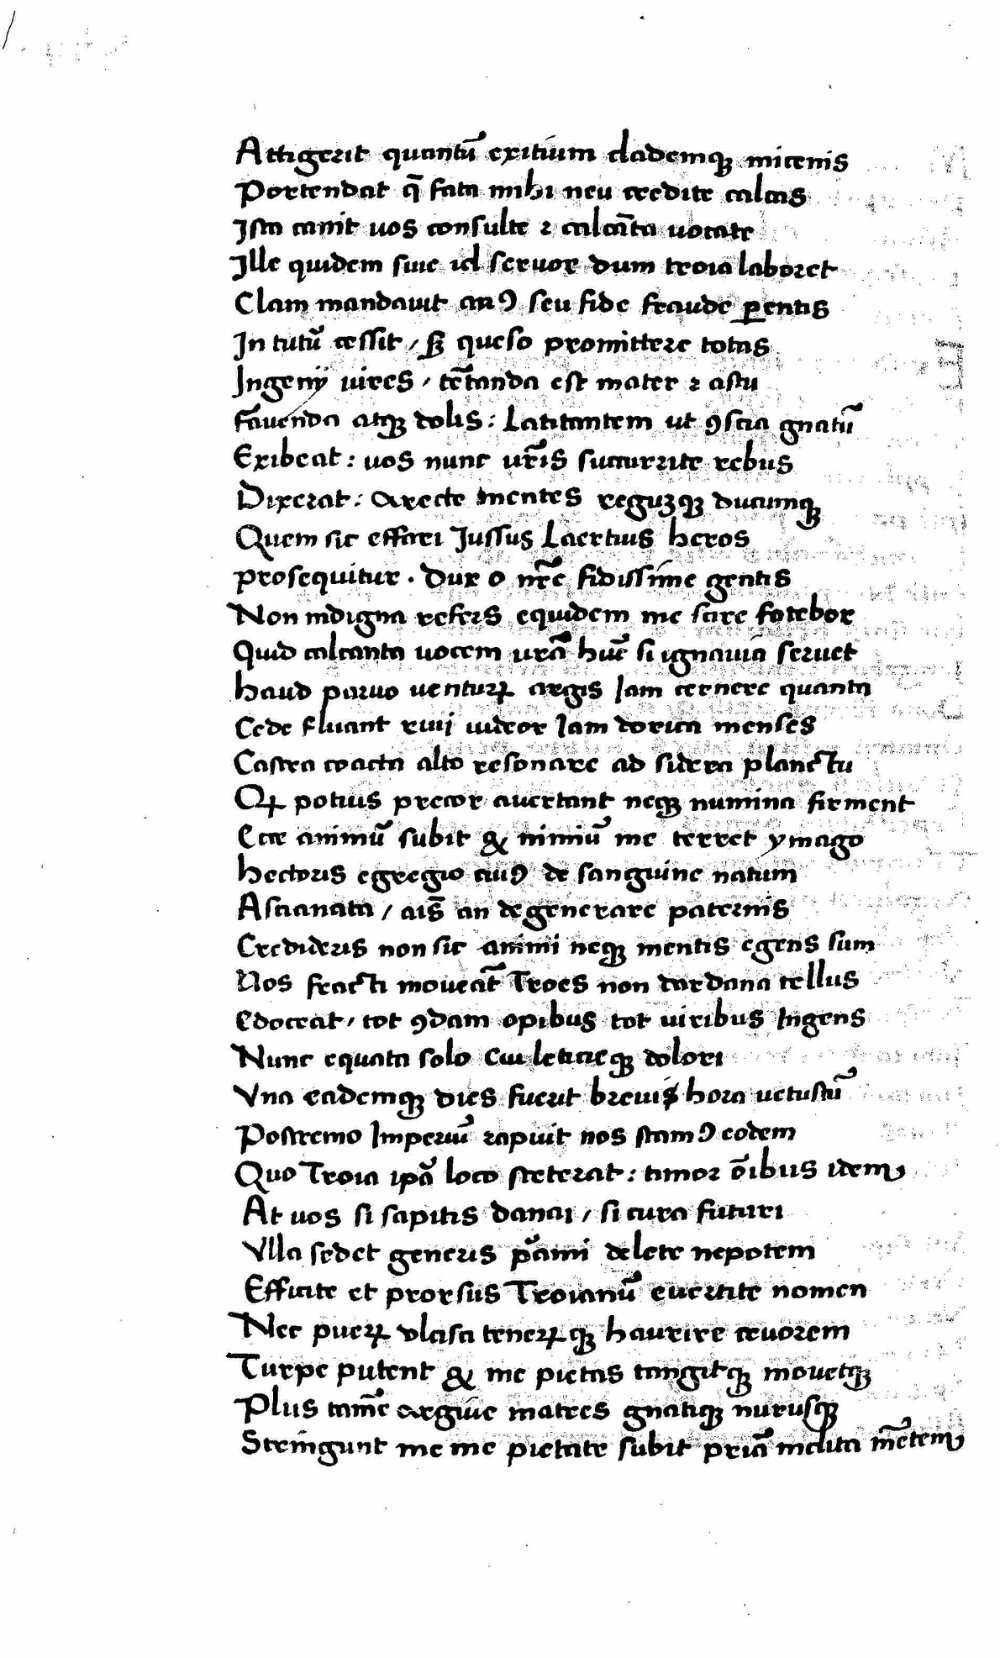 Attigerit quantū exitium clademqꝫ micenis
Portendat q̄ fata mihi neu credite calcas
Ista canit uos consulte ⁊ calcāta uocate
Ille quidem siue id seruor dum troia laboret
Clam mandauit anꝰ seu fide fraude ꝑentis
In tutū cessit / sꝫ queso promittere totas
Ingenij uires / tētanda est mater ⁊ astu
fāuenda atqꝫ dolis : Latitantem ut ꝯscia gnatū
Exibeat : uos nunc ur̄is succurrite rebus
Dixerat : arecte mentes reguʒqꝫ ducumqꝫ
Quem sic effari Jussus Laertius heros
prosequitur . Dux o nr̄e fidissime gentis
Non indigna refers equidem me scire fatebor
Quid calcanta uocem ur̄a hūc si ignauiā seruet
haud paruo uenturꝝ argis Jam cernere quanta
Cede fluant riui uideor Jam dorica menses
Castra coacta alto resonare ad sidera planctu
Qꝝ potius precor auertant neqꝫ numina firment
Ecce animū subit & nimiū me terret ymago
hectoris egregio cuiꝰ de sanguine natum
Ascianata / ais̄ an degenerare paternis
Credideris non sic animi neqꝫ mentis egens sum
Nos fracti moueāt Troes non dardana tellus
Edoceat / tot ꝯdam opibus tot uiribus Ingens
Nunc equata solo Cui leticieqꝫ dolori
Vna eademqꝫ dies fuerit breuis hora uetustū
Postremo Imperiū rapuit nos stamꝰ eodem
Quo Troia ip̄a loco steterat : timor oībus idem
At uos si sapitis danai / si cura futuri
Vlla sedet generis p̄ami delete nepotem
Efficite et prorsus Troianū euertite nomen
Nec puerꝝ vlcisci tenerꝝqꝫ haurire cruorem
Turpe putent & me pietas tangitqꝫ mouetqꝫ
Plus tamē argiue matres gnatiqꝫ nurusqꝫ
Stringunt me me pietate subit priā inclita mētem